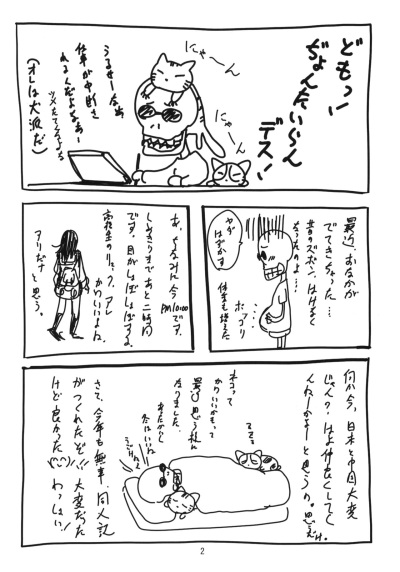 どもっ!
ぢょんたいらん
デス!
にゃーん
にゃーん
うるせーなぁ
仕事が中断さ
れるんだよなあー
ツメたてるなよう
(オレは犬派だ)
最近、おなかが
でてきちゃった…
昔のズボン、はけなく
なったのよ…
ヤダ
はずかす。
ポッコリ
体重も増えた
あ、ちなみに今
PM10:00です。
しめきりまであと二時間
です。目がしぱしぱする。
高校生のリュック、アレ
かわいいよね。
アリだなと思う。
何か今、日本と中国大変
じゃん?はよ仲良くしてく
んねーかなーと思うの。思え。
ネコって
かわいいかもって
最近思う様に
なりました
あたたかい
冬はいいね
さて、今年も無事、同人誌
がつくれたぞ!!大変だった
けど良かった
わっしょい!
2